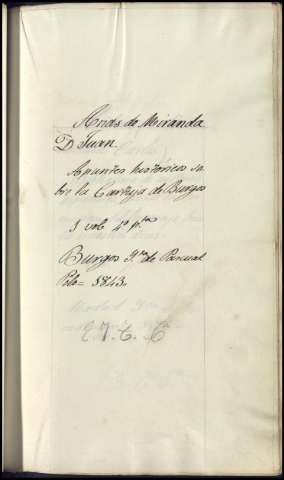 Arias de Miranda
D Juan.
Apuntes históricos so
bre la Cartuja de Burgos
1 vol 4º pta
Burgos Yta de Pascual
Polo = 1843.